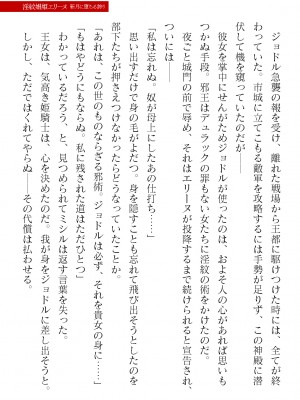 淫紋姫姫エリーヌ 新月に堕ちる誇り
ジョドル急襲の報を受け、離れた戦場から王都に駆けつけた時には、全てが終
わっていた。市城に立てこもる敵軍を攻略するには手勢が足りず、この神殿に潜
伏して機を窺っていたのだが――
彼女を掌中にせんがためジョドルが使ったのは、およそ人の心があれば思いも
つかぬ手段。邪王はデュラックの罪もない女たちに淫紋の術をかけたのだ。
夜ごと城門の前で辱め、それはエリーヌが投降するまで続けられると宣告され、
ついには――
「私は忘れぬ。奴が母上にしたあの仕打ち……」
思い出すだけで身の毛がよだつ。身を隠すことも忘れて飛び出そうとしたのを
部下たちが押さえつけなかったらどうなっていたことか。
「あれは、この世のものならざる邪術。ジョドルは必ず、それを貴女の身に……」
「もはやどうにもならぬ。私に残された道はただひとつ」
わかっているだろう、と、見つめられてミシルは返す言葉を失った。
王女は、気高き姫騎士は、心を決めたのだ。我が身をジョドルに差し出そうと。
しかし、ただではくれてやらぬ。その代償は払わせる。